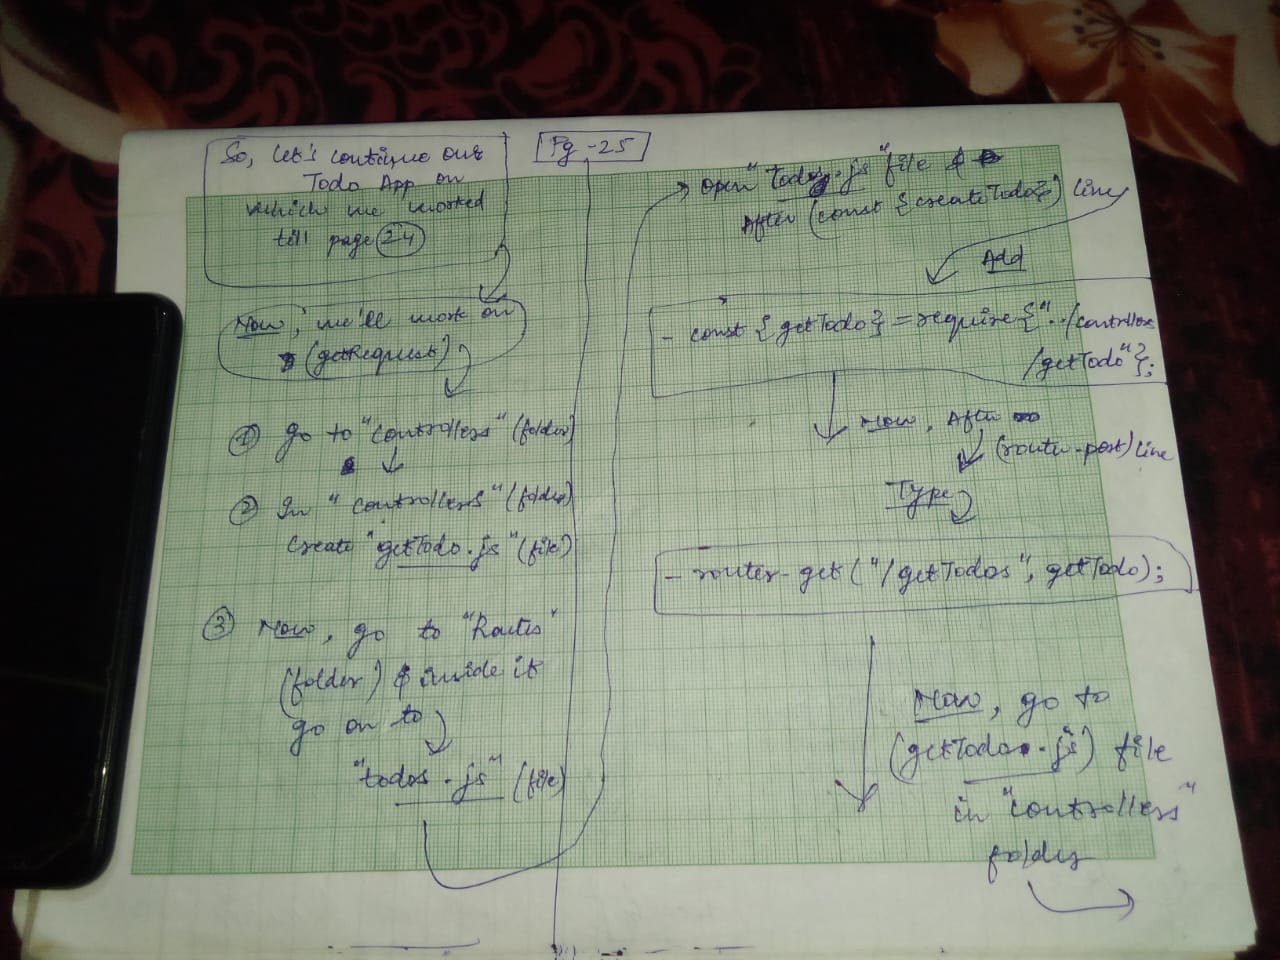 Pg - 25
So, let's continue our
Todo App on
which we worked
till page 24
Now, we'll work on
(getRequest)
① go to "controllers" (folder)
② In "controllers" (folder)
create "getTodo.js" (file)
③ Now, go to "Routes"
(folder) & inside it
go on to
"todos.js" (file)
→ open "todos.js" file &
After (const {createTodo}) line
Add
- const {getTodo} = require {"../controllers
/getTodo"};
Now, After
(router-post) line
Type
- router-get ("/getTodos", getTodo);
Now, go to
(getTodo.js) file
in "controllers"
folder